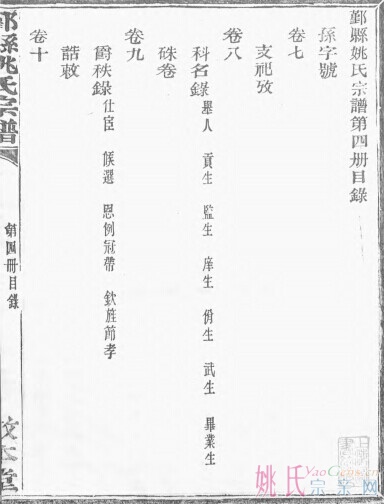 鄞縣姚氏宗譜第四册目錄
孫字號
卷七
支祀攷
卷八
科名錄 舉人 貢生 監生 庠生 佾生 武生 畢業生
硃卷
卷九
爵秩錄 仕宦 候選 恩例冠帶 欽旌節孝
誥敕
卷十
鄞縣姚氏宗譜
第四册目錄
姚氏宗亲网
YaoGens.cn